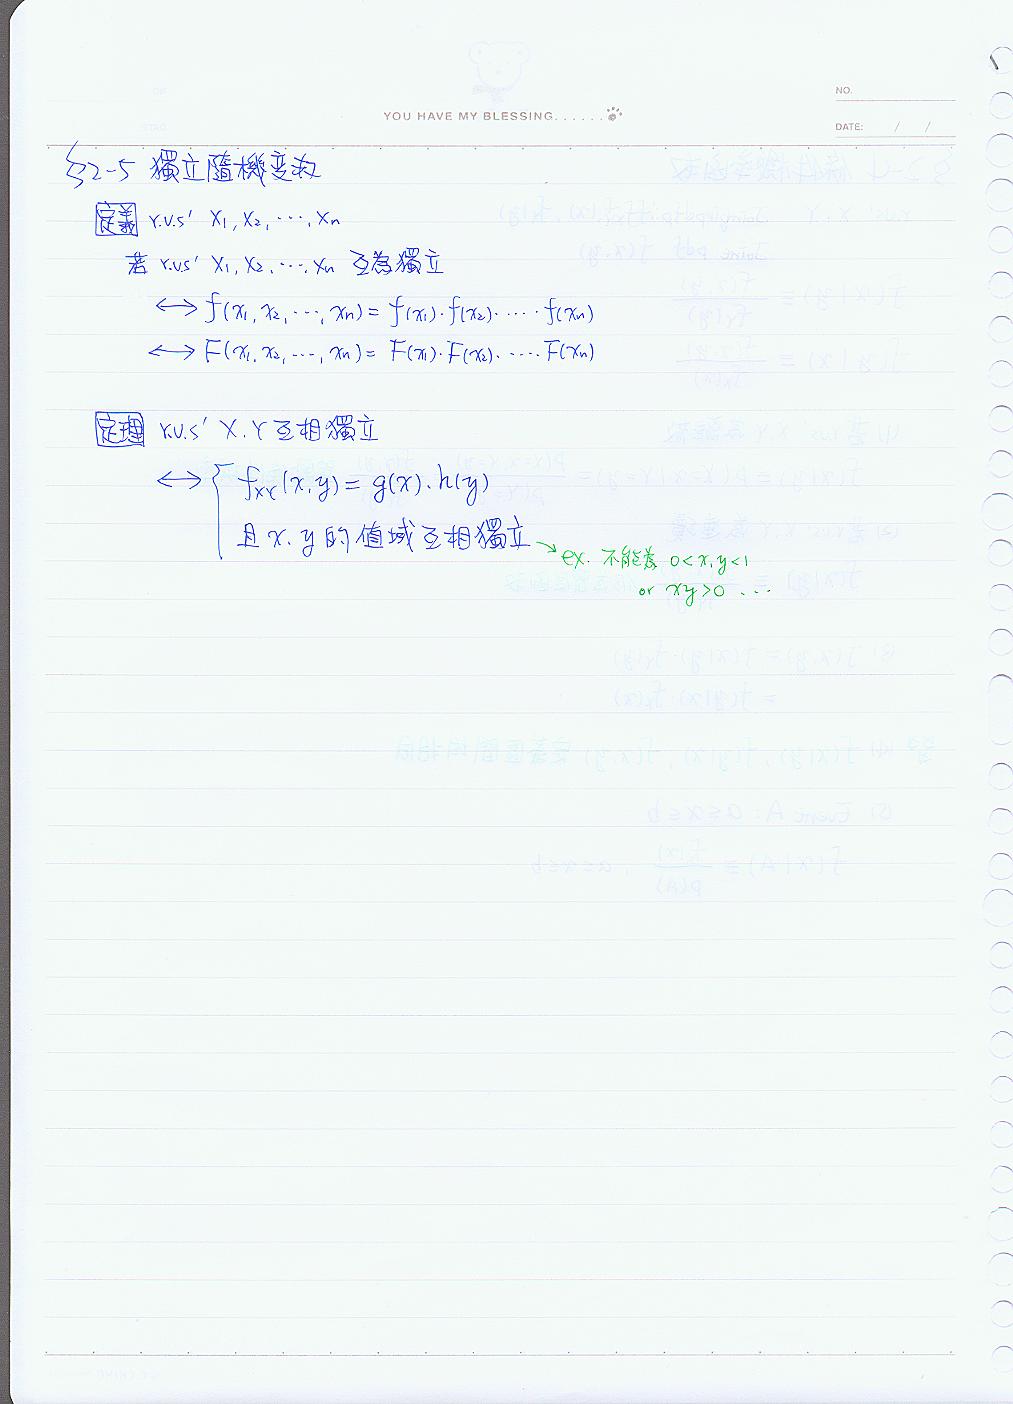 NO.
YOU HAVE MY BLESSING......
DATE: / /
§2-5 獨立隨機变数
定義 r.v.s' X1, X2, ..., Xn
若 r.v.s' X1, X2, ..., Xn 互為獨立
↔ f(x1, x2, ..., xn) = f(x1)·f(x2)·....·f(xn)
↔ F(x1, x2, ..., xn) = F(x1)·F(x2)·....·F(xn)
定理 r.v.s' X.Y 互相獨立
↔ { fXY(x,y) = g(x)·h(y)
且 x.y 的值域互相獨立
→ ex. 不能為 0<x,y<1
or xy>0 ...